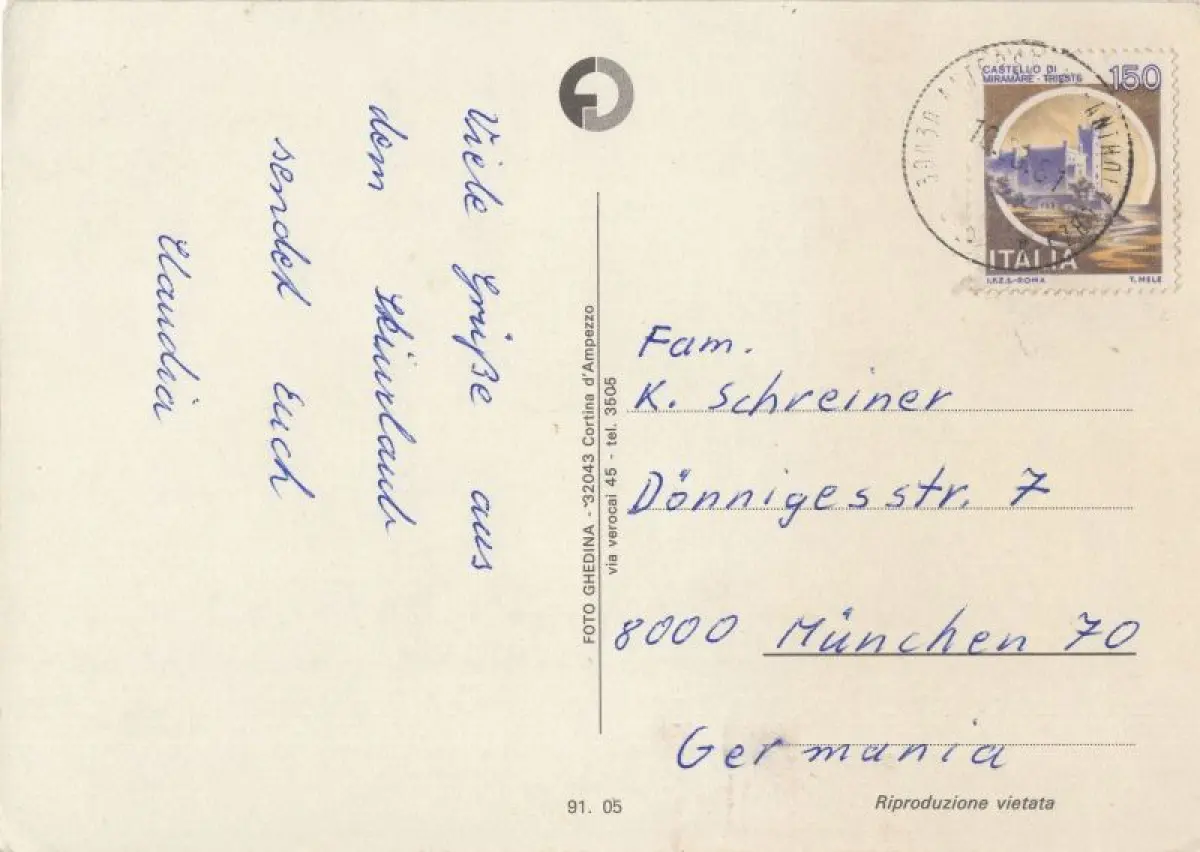 Viele Grüße aus
dem Skiurlaub
sendet Euch
Claudia
FOTO GHEDINA - 32043 Cortina d'Ampezzo
via verocai 45 - tel. 3505
CASTELLO DI
MIRAMARE - TRIESTE
150
ITALIA
I.P.Z.S.-ROMA
T. MELE
Fam.
K. Schreiner
Dönnigesstr. 7
8000 München 70
Germania
91. 05
Riproduzione vietata